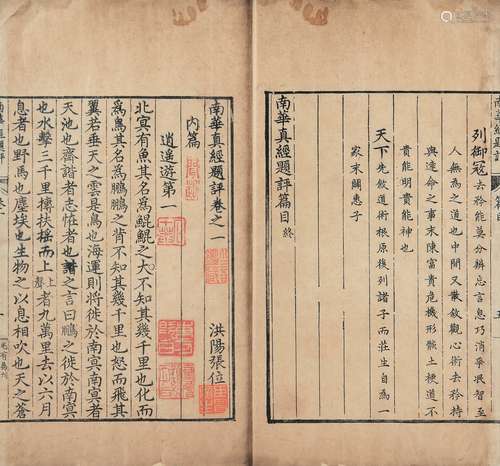 列御寇 去矜能莫分辨忘言息巧乃消
人無為之道也中間又散敘觀心術去矜持
與達命之事末陳富貴危機形骸土梗道不
貴能明貴能神也
天下 先敘道術根原後列諸子而莊生自為一
家末闢惠子
南華真經題評篇目終
南華真經題評卷之一 洪陽張位
內篇
逍遙遊第一
北冥有魚其名為鯤鯤之大不知其幾千里也化而
為鳥其名為鵬鵬之背不知其幾千里也怒而飛其
翼若垂天之雲是鳥也海運則將徙於南冥南冥者
天池也齊諧者志怪者也諧之言曰鵬之徙於南冥
也水擊三千里摶扶搖而上上聲者九萬里去以六月
息者也野馬也塵埃也生物之以息相吹也天之蒼